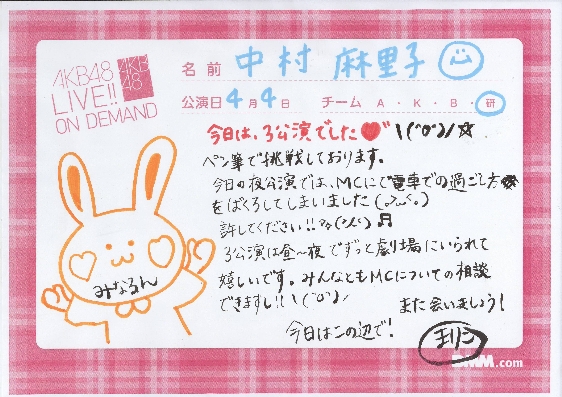 AKB48
LIVE!!
ON DEMAND
AKB
48
名前 中村 麻里子
公演日 4月4日 チーム A・K・B・研
今日は、3公演でした♥ \(^o^)/☆
ペン筆で挑戦しております。
今日の夜公演では、MCにて電車での過ごし方
をばくろしてしまいました
許してください!!
3公演は昼〜夜でずっと劇場にいられて
嬉しいです。みんなともMCについての相談
できますし!! \(^o^)/
また会いましょう!
今日はこの辺で!
みなるん
DMM.com